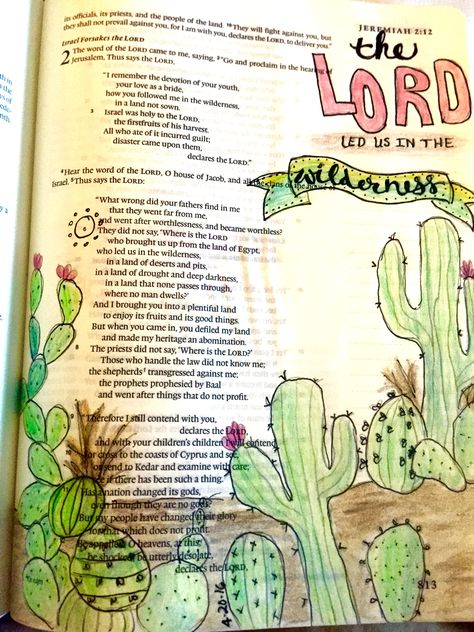 its officials, its priests, and the people of the land. 19 They will fight against you, but
they shall not prevail against you, for I am with you, declares the LORD, to deliver you."
Israel Forsakes the LORD
2 The word of the LORD came to me, saying, 2 "Go and proclaim in the hearing of
Jerusalem, Thus says the LORD,
"I remember the devotion of your youth,
your love as a bride,
how you followed me in the wilderness,
in a land not sown.
3 Israel was holy to the LORD,
the firstfruits of his harvest.
All who ate of it incurred guilt;
disaster came upon them,
declares the LORD."
4 Hear the word of the LORD, O house of Jacob, and all the clans of the house of
Israel. 5 Thus says the LORD:
"What wrong did your fathers find in me
that they went far from me,
and went after worthlessness, and became worthless?
They did not say, 'Where is the LORD
who brought us up from the land of Egypt,
who led us in the wilderness,
in a land of deserts and pits,
in a land of drought and deep darkness,
in a land that none passes through,
where no man dwells?'
And I brought you into a plentiful land
to enjoy its fruits and its good things.
But when you came in, you defiled my land
and made my heritage an abomination.
8 The priests did not say, 'Where is the LORD?'
Those who handle the law did not know me;
the shepherds transgressed against me;
the prophets prophesied by Baal
and went after things that do not profit.
9 "Therefore I still contend with you,
declares the LORD,
and with your children's children I will contend.
For cross to the coasts of Cyprus and see,
or send to Kedar and examine with care;
see if there has been such a thing.
Has a nation changed its gods,
even though they are no gods?
But my people have changed their glory
for that which does not profit.
Be appalled, O heavens, at this;
be shocked, be utterly desolate,
declares the LORD,
JEREMIAH 2:12
the
LORD
LED US IN THE
wilderness
4-20-16
813